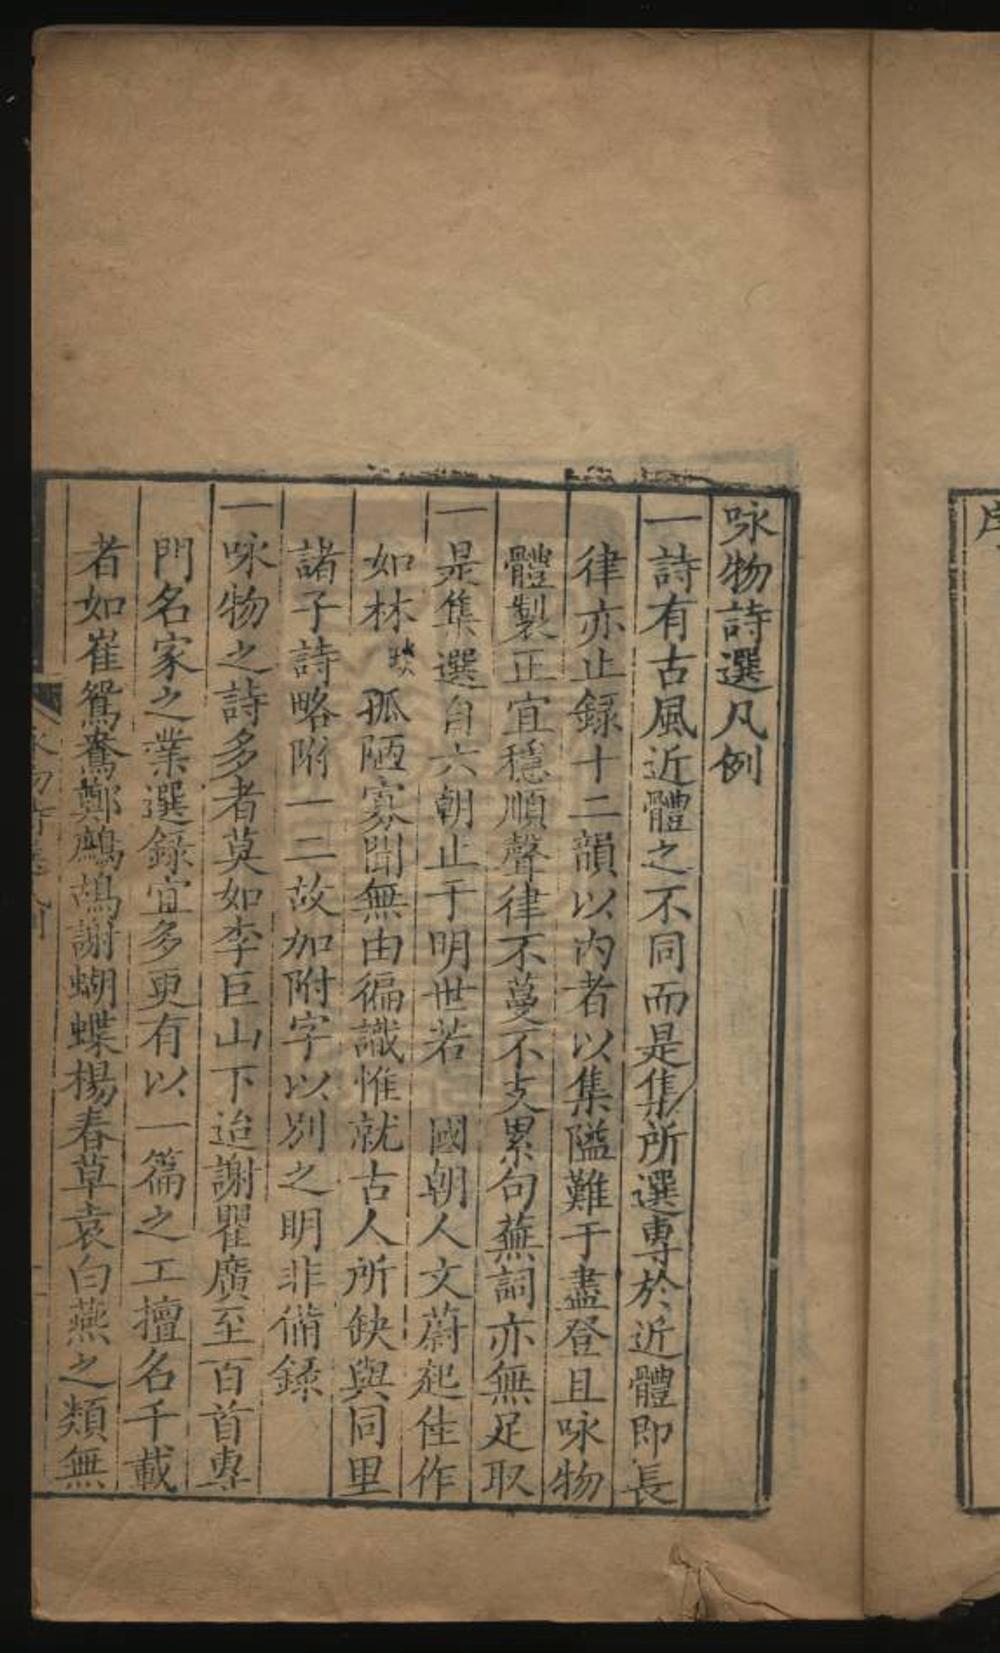 咏物詩選凡例
一詩有古風近體之不同而是集所選專於近體即長
律亦止録十二韻以内者以集隘難于盡登且咏物
體製正宜穩順聲律不蔓不支累句蕪詞亦無足取
一是集選自六朝止于明世若　國朝人文蔚起佳作
如林琰孤陋寡聞無由徧識惟就古人所缺與同里
諸子詩略附一二故加附字以別之明非備錄
一咏物之詩多者莫如李巨山下迨謝瞿廣至百首專
門名家之業選録宜多更有以一篇之工擅名千載
者如崔鴛鴦鄭鷓鴣謝蝴蝶楊春草袁白燕之類無